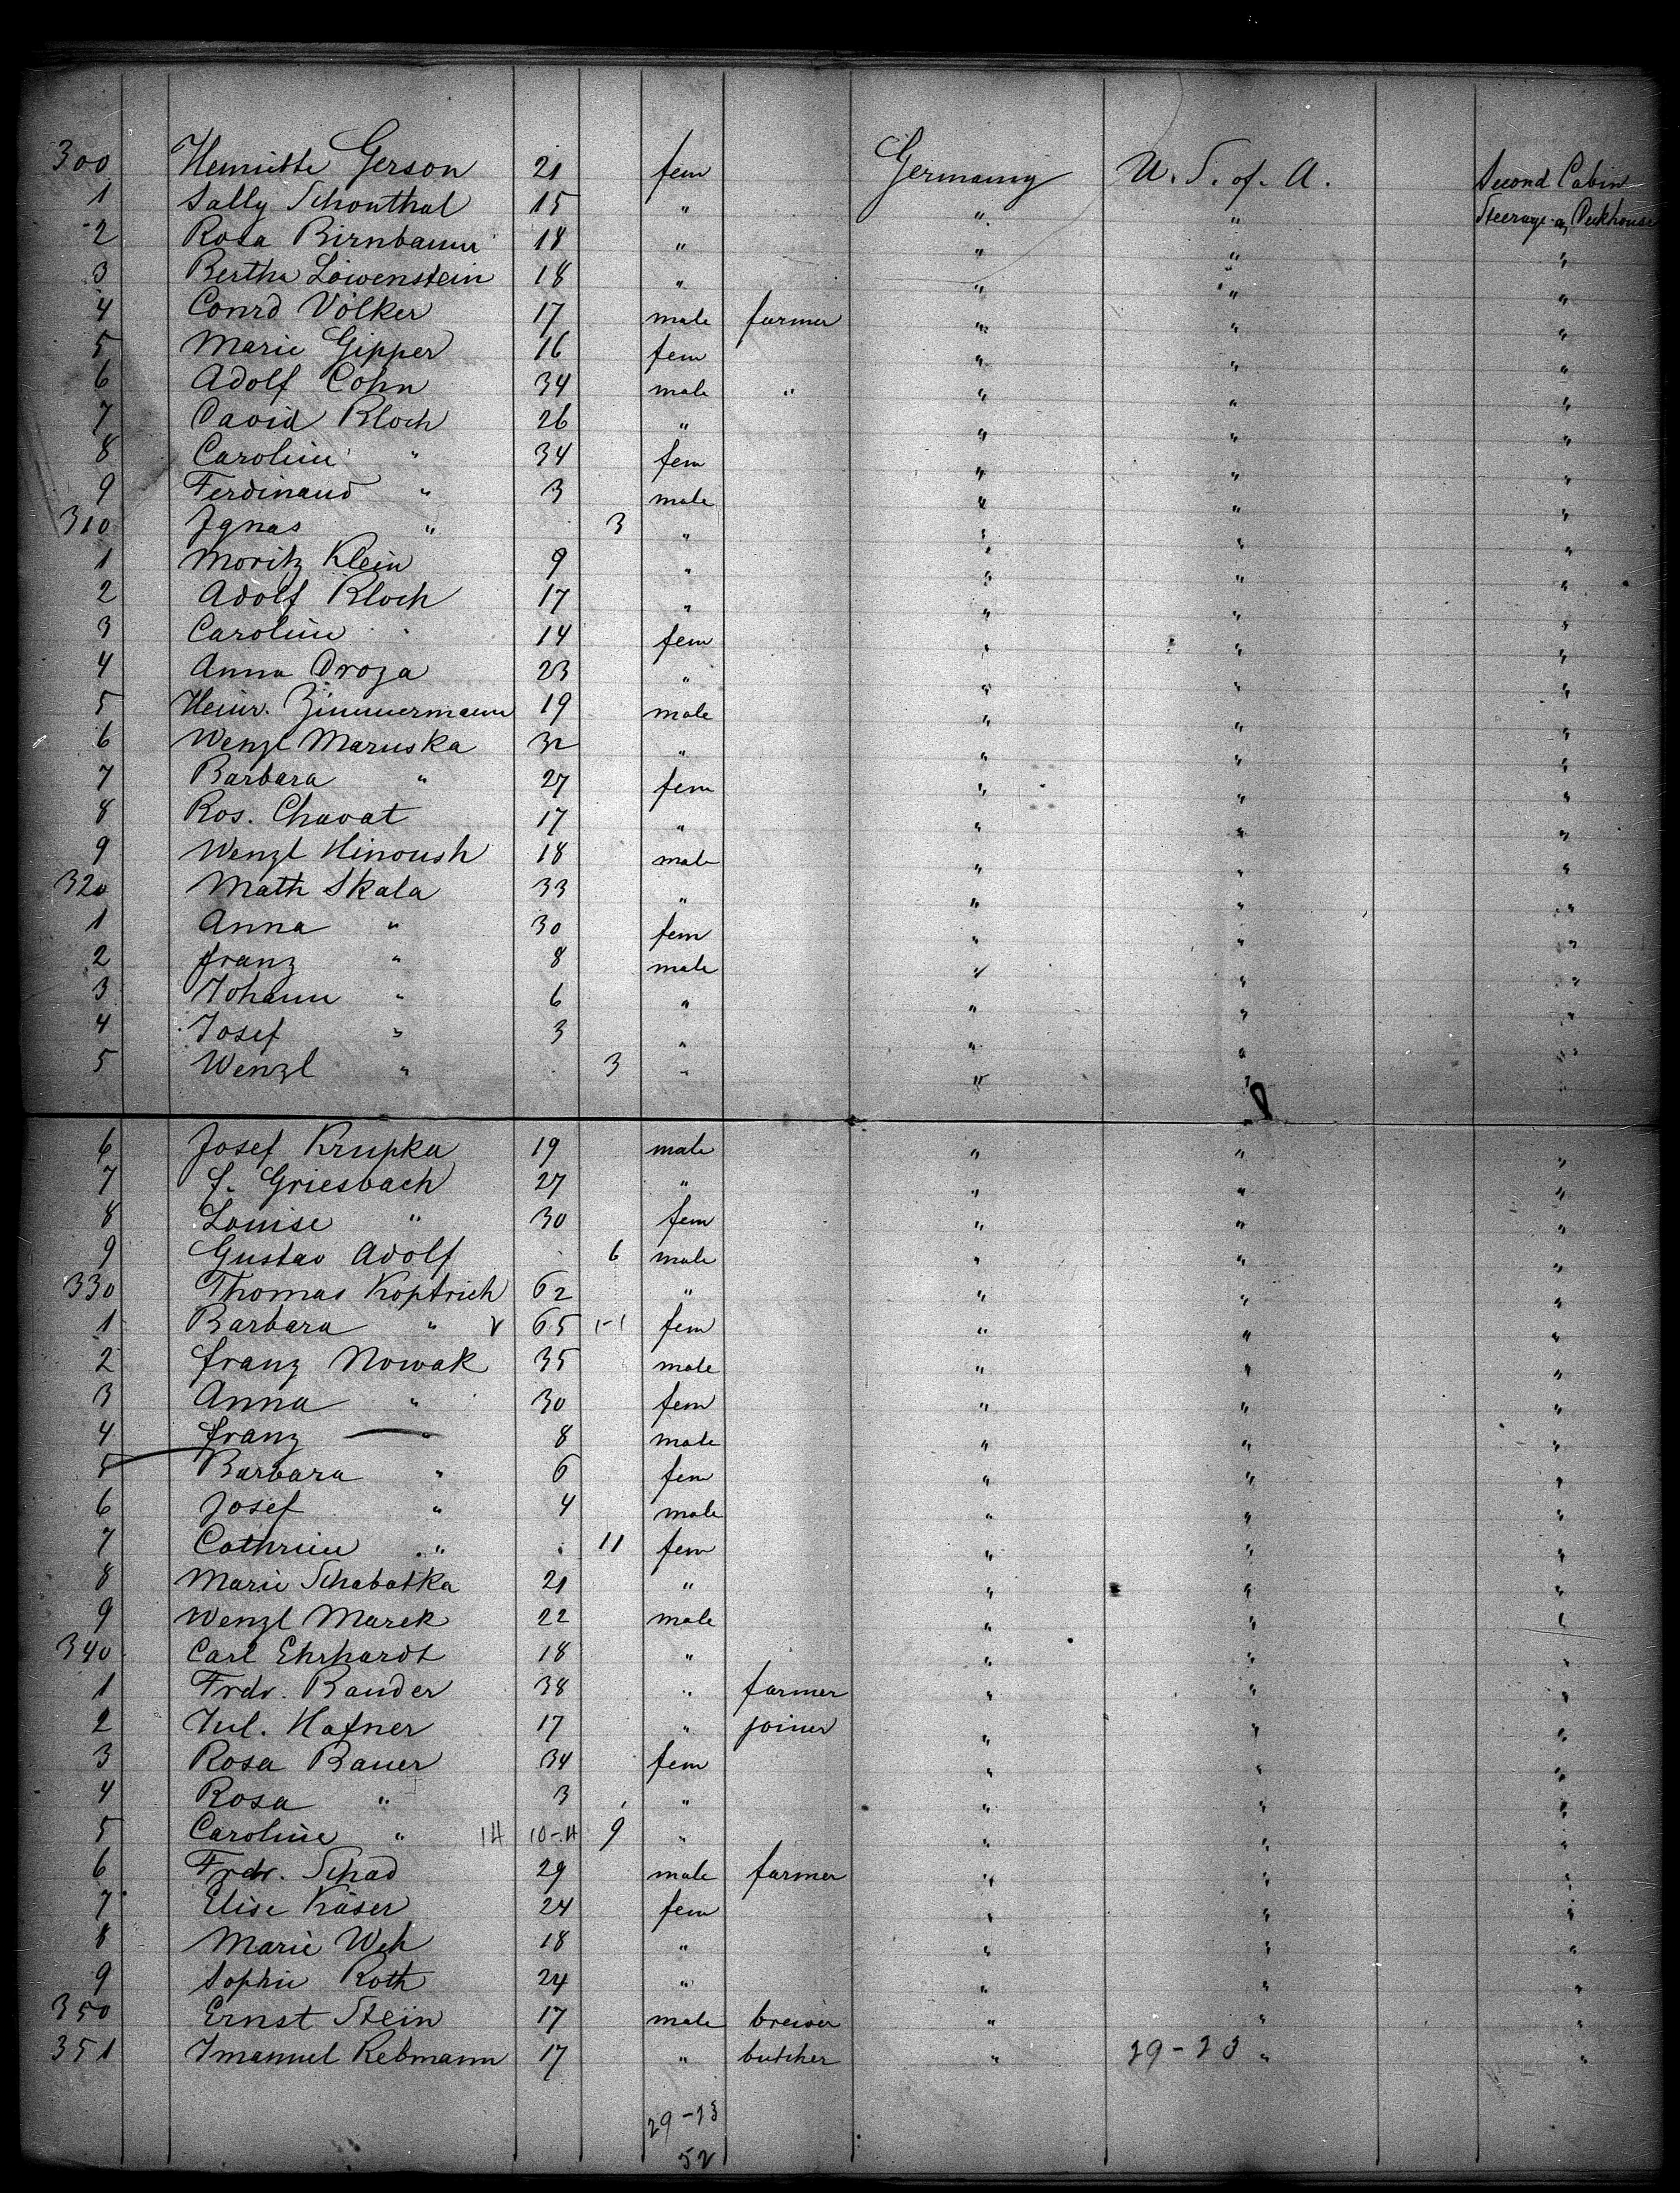 300 Henriette Gerson 21 fem Germany U. S. of. A. Second Cabin
1 Sally Schonthal 15 " " " Steerage a, Deckhouse
2 Rosa Birnbaum 18 " " " "
3 Bertha Löwenstein 18 " " " "
4 Conrd Völker 17 male farmer " " "
5 Marie Gipper 16 fem " " "
6 Adolf Cohn 34 male " " " "
7 David Bloch 26 " " " "
8 Carolin " 34 fem " " "
9 Ferdinand " 3 male " " "
310 Ignas " 3 " " " "
1 Moritz Klein 9 " " " "
2 Adolf Bloch 17 " " " "
3 Carolin " 14 fem " " "
4 Anna Droza 23 " " " "
5 Heinr. Zimmermann 19 male " " "
6 Wenzl Maruska 32 " " " "
7 Barbara " 27 fem " " "
8 Ros. Chavat 17 " " " "
9 Wenzl Hinoush 18 male " " "
320 Math Skala 33 " " " "
1 Anna " 30 fem " " "
2 Franz " 8 male " " "
3 Johann " 6 " " " "
4 Josef " 3 " " " "
5 Wenzl " 3 " " " "
6 Josef Krupka 19 male " " "
7 F. Griesbach 27 " " " "
8 Louise " 30 fem " " "
9 Gustav Adolf 6 male " " "
330 Thomas Koptrich 62 " " " "
1 Barbara " v 65 1-1 fem " " "
2 Franz Nowak 35 male " " "
3 Anna " 30 fem " " "
4 Franz " 8 male " " "
5 Barbara " 6 fem " " "
6 Josef " 4 male " " "
7 Cathrin " 11 fem " " "
8 Marie Schabatka 21 " " " "
9 Wenzl Marek 22 male " " "
340 Carl Ehrhardt 18 " " " "
1 Frdr. Bauder 38 " farmer " " "
2 Jul. Hafner 17 " joiner " " "
3 Rosa Bauer 34 fem " " "
4 Rosa " 3 " " " "
5 Caroline " 14 10-4 9 " " " "
6 Frdr. Schad 29 male farmer " " "
7 Elise Käser 24 fem " " "
8 Marie Weh 18 " " " "
9 Sophie Roth 24 " " " "
350 Ernst Stein 17 male brewer " " "
351 Imanuel Rebmann 17 " butcher " 29-23 " "
29-23
52